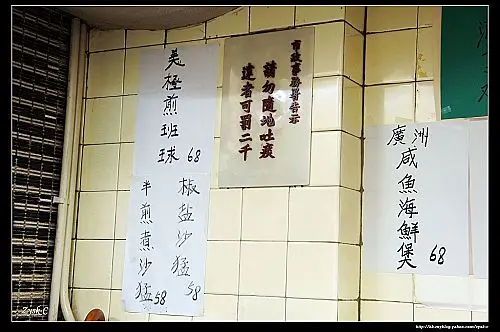 美極煎班球 68
椒鹽沙猛 58
半煎煮沙猛 58
市政事務署告示
請勿隨地吐痰
違者可罰二千
廣洲
咸魚海鮮煲 68